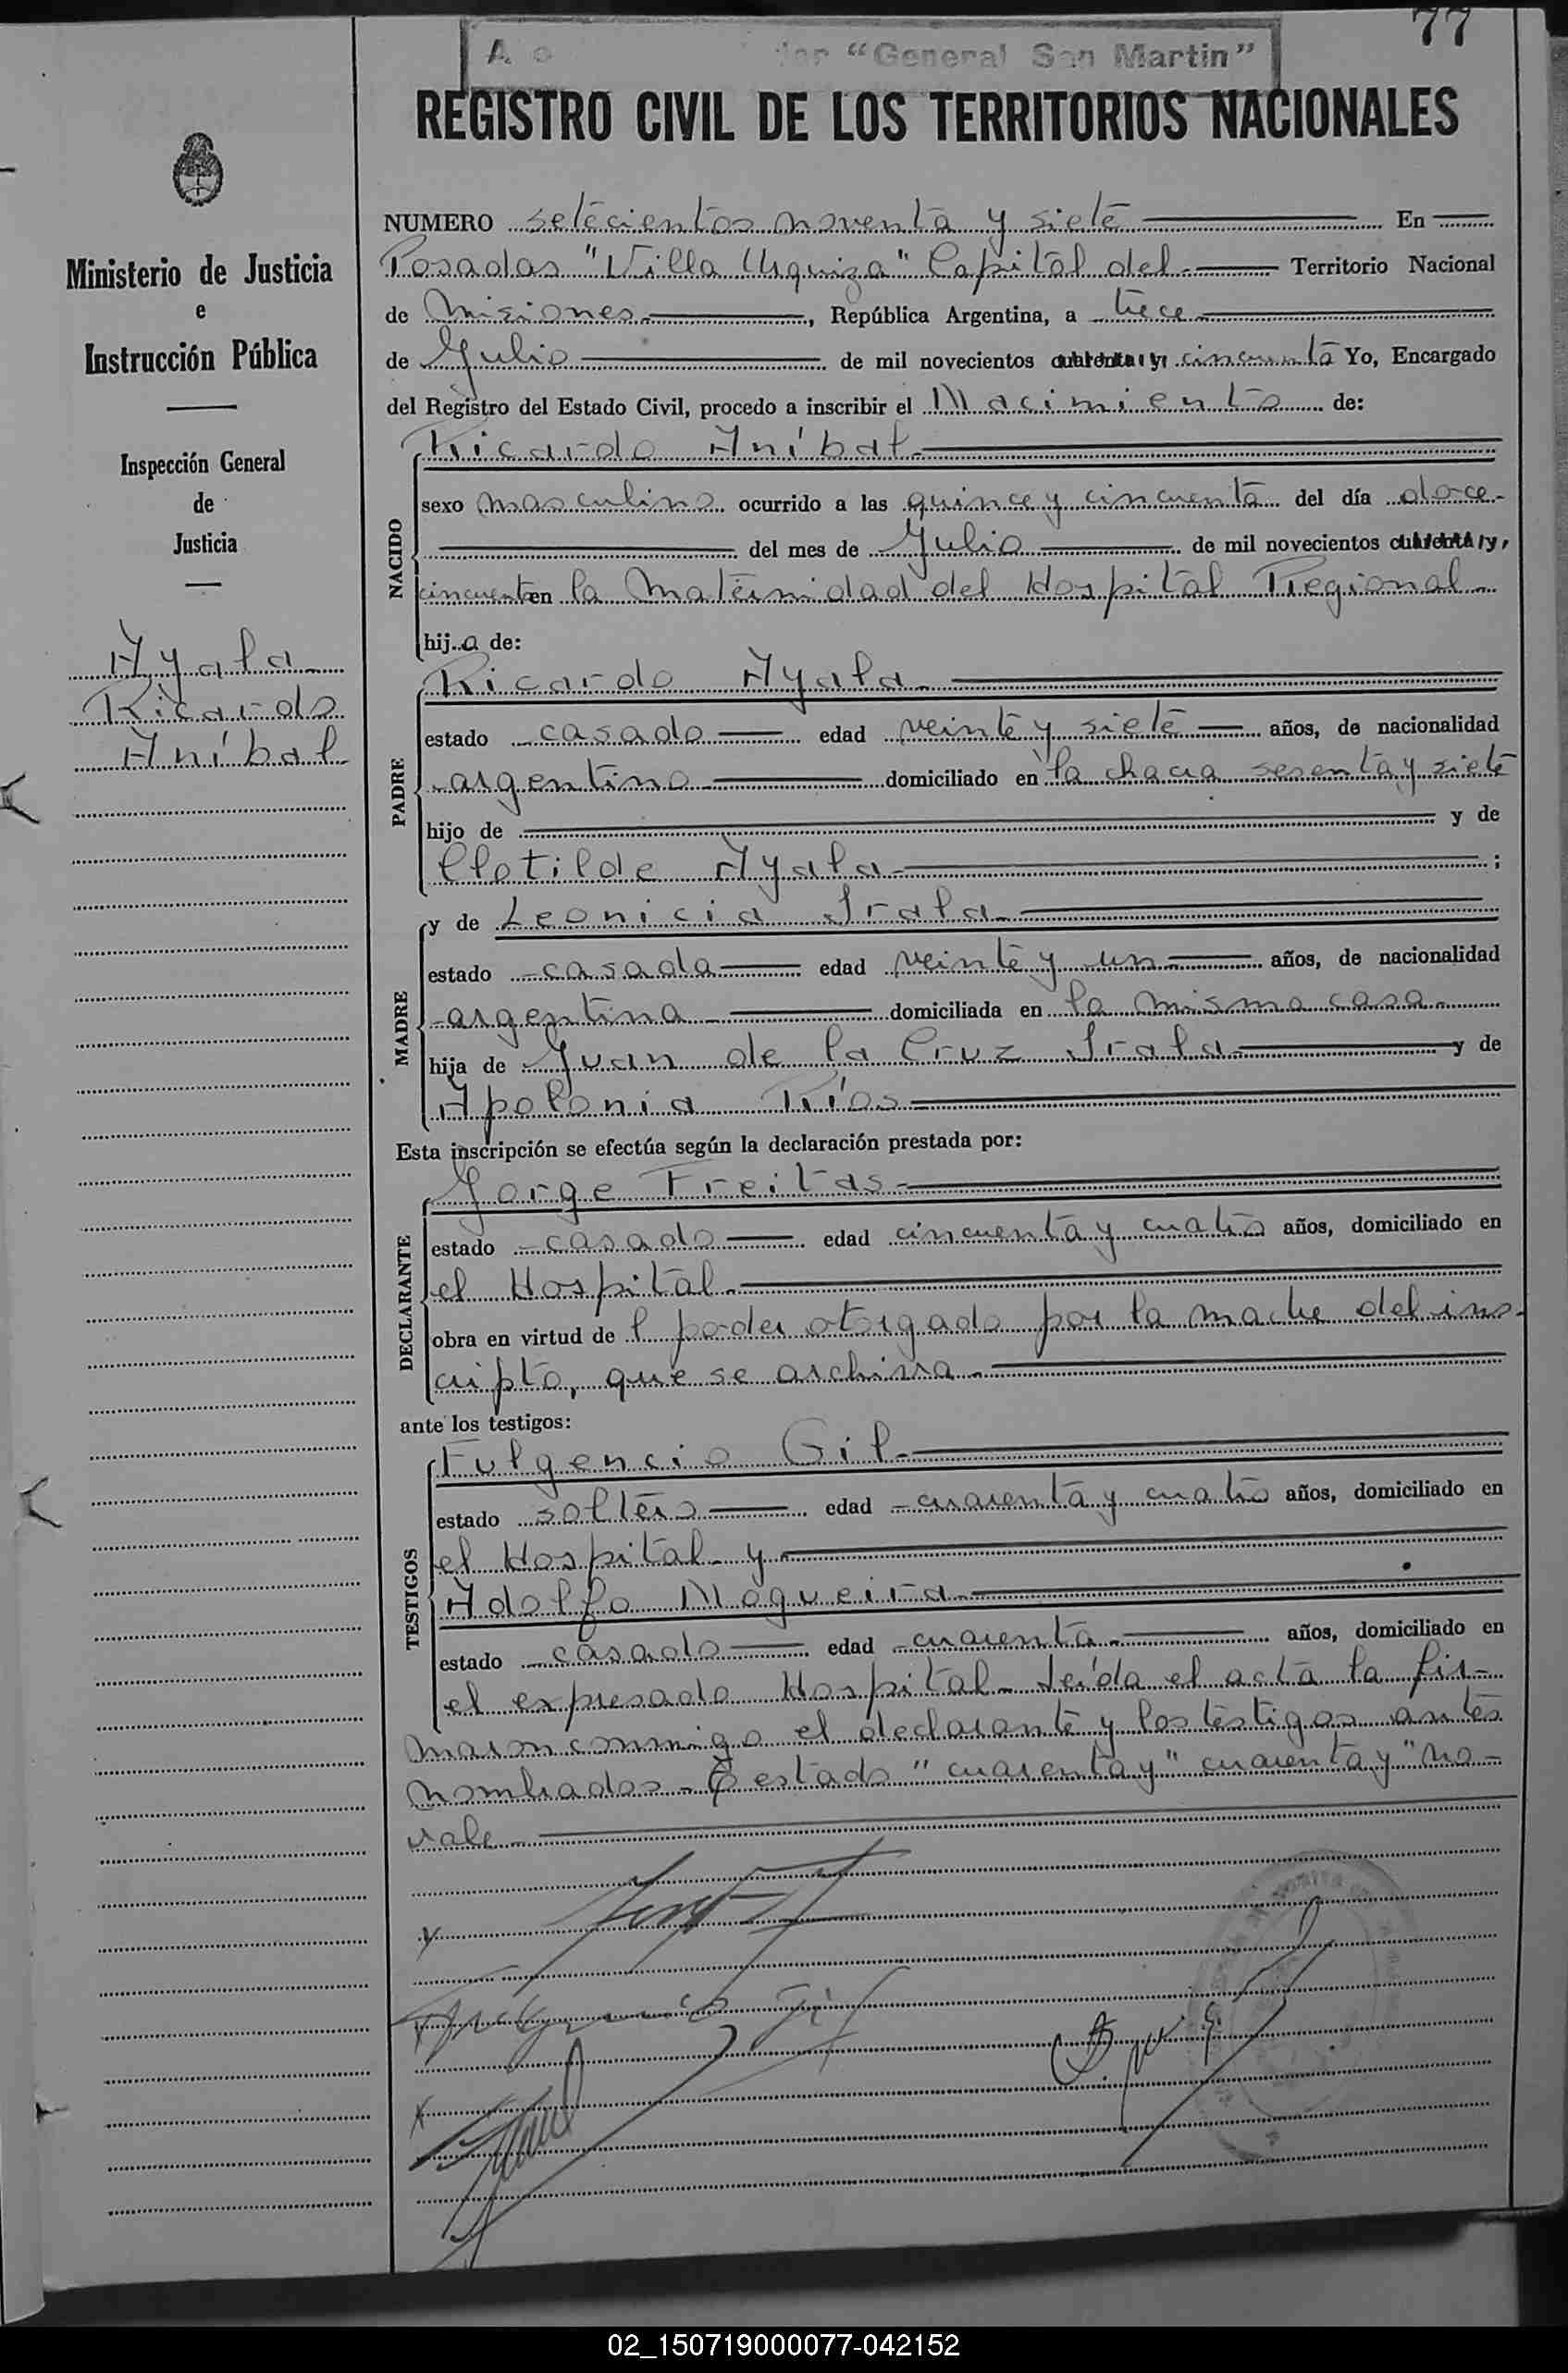 77
"General San Martin"
REGISTRO CIVIL DE LOS TERRITORIOS NACIONALES
Ministerio de Justicia
e
Instrucción Pública
Inspección General
de
Justicia
Ayala
Ricardo
Aníbal
NUMERO setecientos noventa y siete En
Posadas "Villa Urquiza" Capital del Territorio Nacional
de Misiones, República Argentina, a trece
de Julio de mil novecientos cuarenta y cincuenta Yo, Encargado
del Registro del Estado Civil, procedo a inscribir el Nacimiento de:
NACIDO
Ricardo Aníbal
sexo masculino ocurrido a las quince y cincuenta del día doce
del mes de Julio de mil novecientos cuarenta y,
cincuenta en la Maternidad del Hospital Regional
hijo de:
PADRE
Ricardo Ayala
estado casado edad veinte y siete años, de nacionalidad
argentino domiciliado en la chacra sesenta y siete
hijo de y de
Clotilde Ayala ;
MADRE
y de Leonicia Irala
estado casada edad veinte y un años, de nacionalidad
argentina domiciliada en la misma casa
hija de Juan de la Cruz Irala y de
Apolonia Ríos
Esta inscripción se efectúa según la declaración prestada por:
DECLARANTE
Jorge Freitas
estado casado edad cincuenta y cuatro años, domiciliado en
el Hospital
obra en virtud de l poder otorgado por la madre del ins-
cripto, que se archiva
ante los testigos:
TESTIGOS
Fulgencio Gil
estado soltero edad cuarenta y cuatro años, domiciliado en
el Hospital y
Adolfo Nogueira
estado casado edad cuarenta años, domiciliado en
el expresado Hospital. Leída el acta la fir-
maron conmigo el declarante y los testigos antes
nombrados. Testado "cuarenta y" cuarenta y" no
vale
Fulgencio Gil
02_150719000077-042152